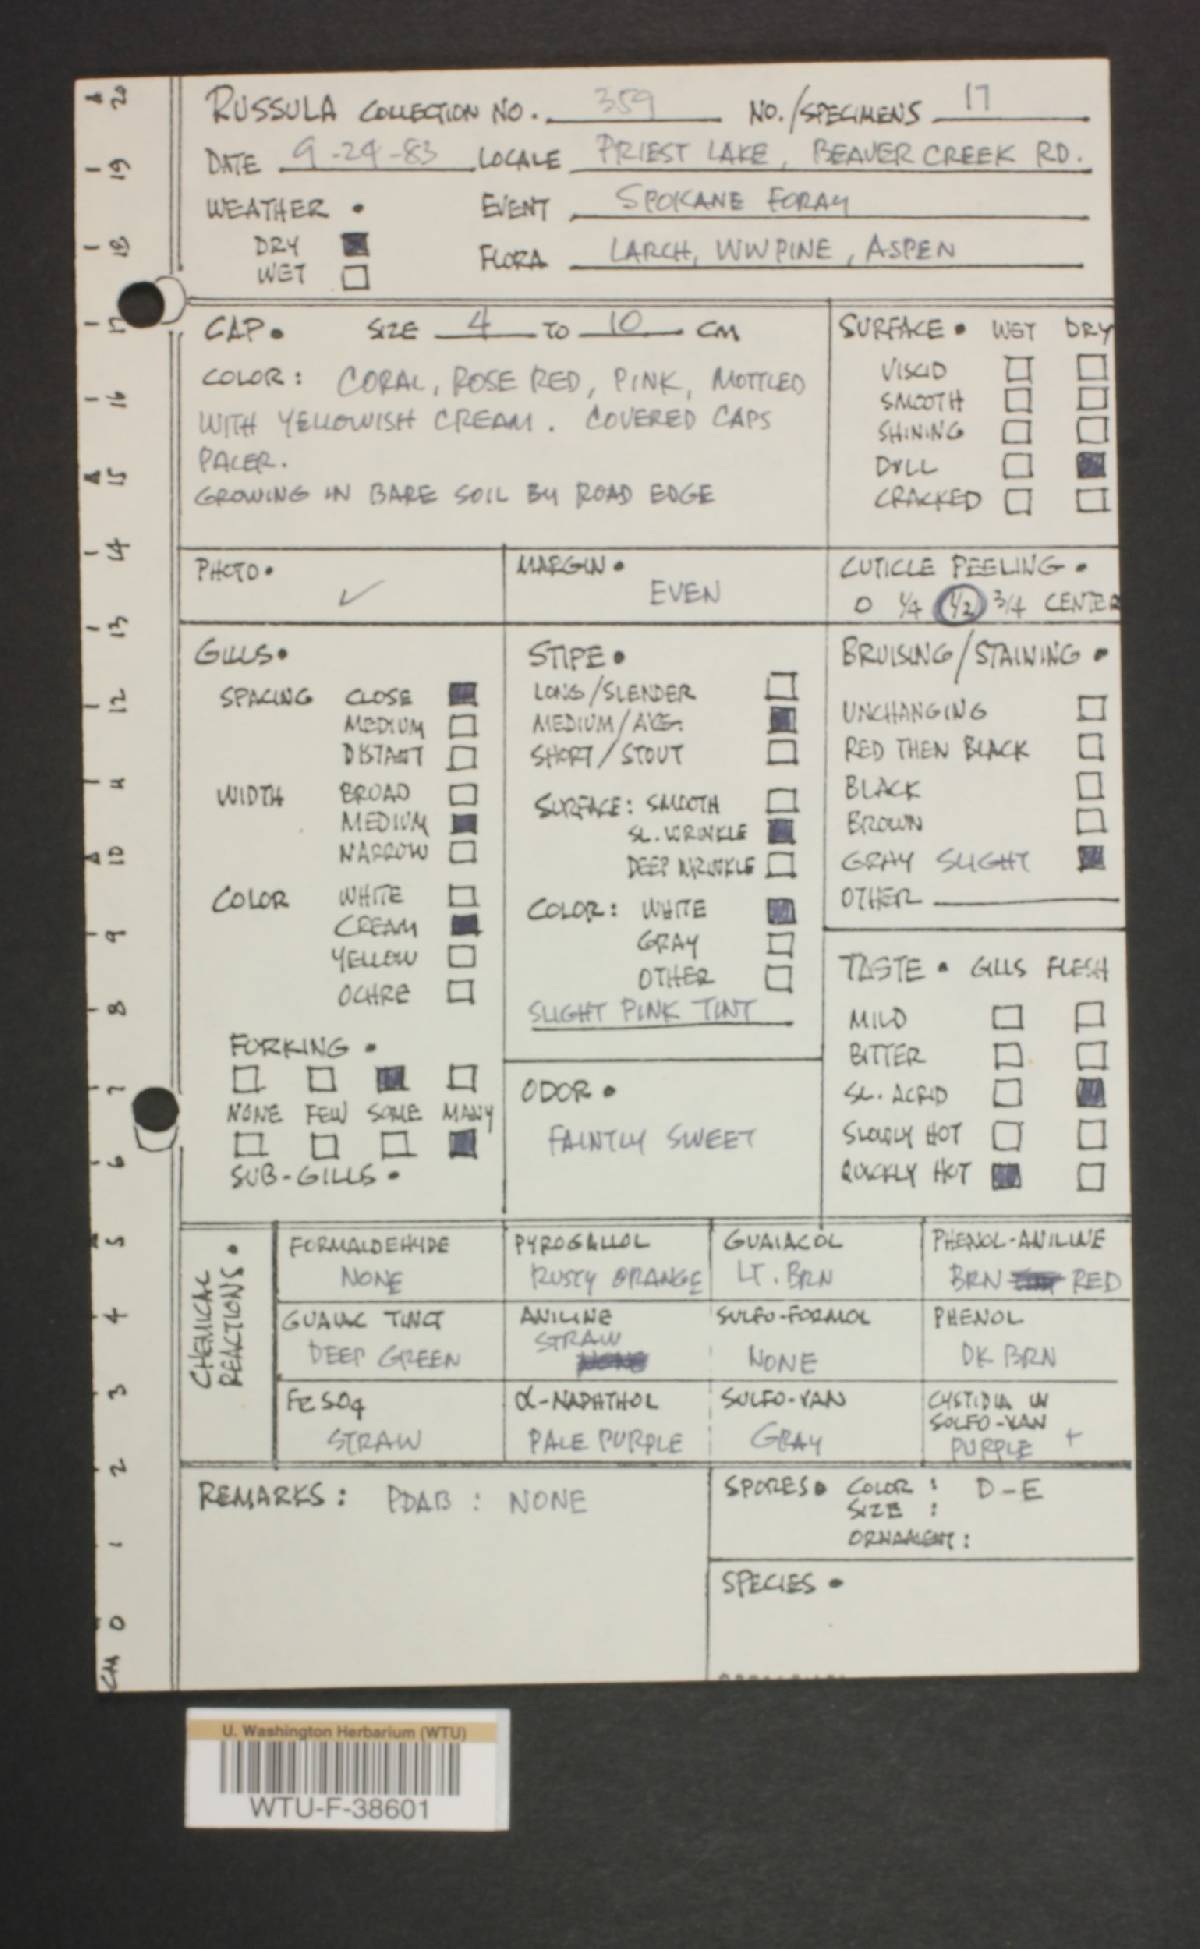 RUSSULA COLLECTION NO. 359 NO./SPECIMENS 17
DATE 9-24-83 LOCALE PRIEST LAKE, BEAVER CREEK RD.
WEATHER • EVENT SPOKANE FORAY
DRY
WET FLORA LARCH, WWPINE, ASPEN
CAP • SIZE 4 TO 10 CM
COLOR: CORAL, ROSE RED, PINK, MOTTLED
WITH YELLOWISH CREAM. COVERED CAPS
PALER.
GROWING IN BARE SOIL BY ROAD EDGE
SURFACE • WET DRY
VISCID
SMOOTH
SHINING
DULL
CRACKED
PHOTO • ✓
MARGIN •
EVEN
CUTICLE PEELING •
0 1/4 1/2 3/4 CENTER
GILLS •
SPACING CLOSE
MEDIUM
DISTANT
WIDTH BROAD
MEDIUM
NARROW
COLOR WHITE
CREAM
YELLOW
OCHRE
FORKING •
NONE FEW SOME MANY
SUB-GILLS •
STIPE •
LONG/SLENDER
MEDIUM/AVG.
SHORT/STOUT
SURFACE: SMOOTH
SL. WRINKLE
DEEP WRINKLE
COLOR: WHITE
GRAY
OTHER
SLIGHT PINK TINT
ODOR •
FAINTLY SWEET
BRUISING/STAINING •
UNCHANGING
RED THEN BLACK
BLACK
BROWN
GRAY SLIGHT
OTHER
TASTE • GILLS FLESH
MILD
BITTER
SL. ACRID
SLOWLY HOT
QUICKLY HOT
CHEMICAL
REACTIONS •
FORMALDEHYDE
NONE
PYROGALLOL
RUSTY ORANGE
GUAIACOL
LT. BRN
PHENOL-ANILINE
BRN RED
GUAIAC TINCT
DEEP GREEN
ANILINE
STRAW
NONE
SULFO-FORMOL
NONE
PHENOL
DK BRN
FeSO4
STRAW
α-NAPHTHOL
PALE PURPLE
SULFO-VAN
GRAY
CYSTIDIA IN
SULFO-VAN
PURPLE +
REMARKS: PDAB: NONE
SPORES • COLOR: D-E
SIZE:
ORNAMENT:
SPECIES •
CM 0 1 2 3 4 5 6 7 8 9 10 11 12 13 14 15 16 17 18 19 20
U. Washington Herbarium (WTU)
WTU-F-38601